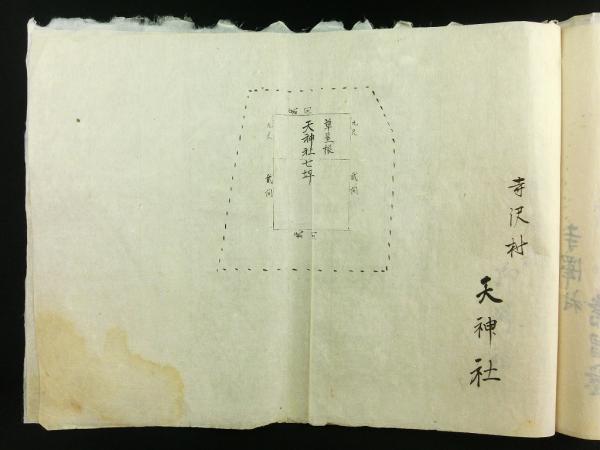 寺沢村
天神社
草屋根
天神社七坪
九尺
弐間
九尺
弐間